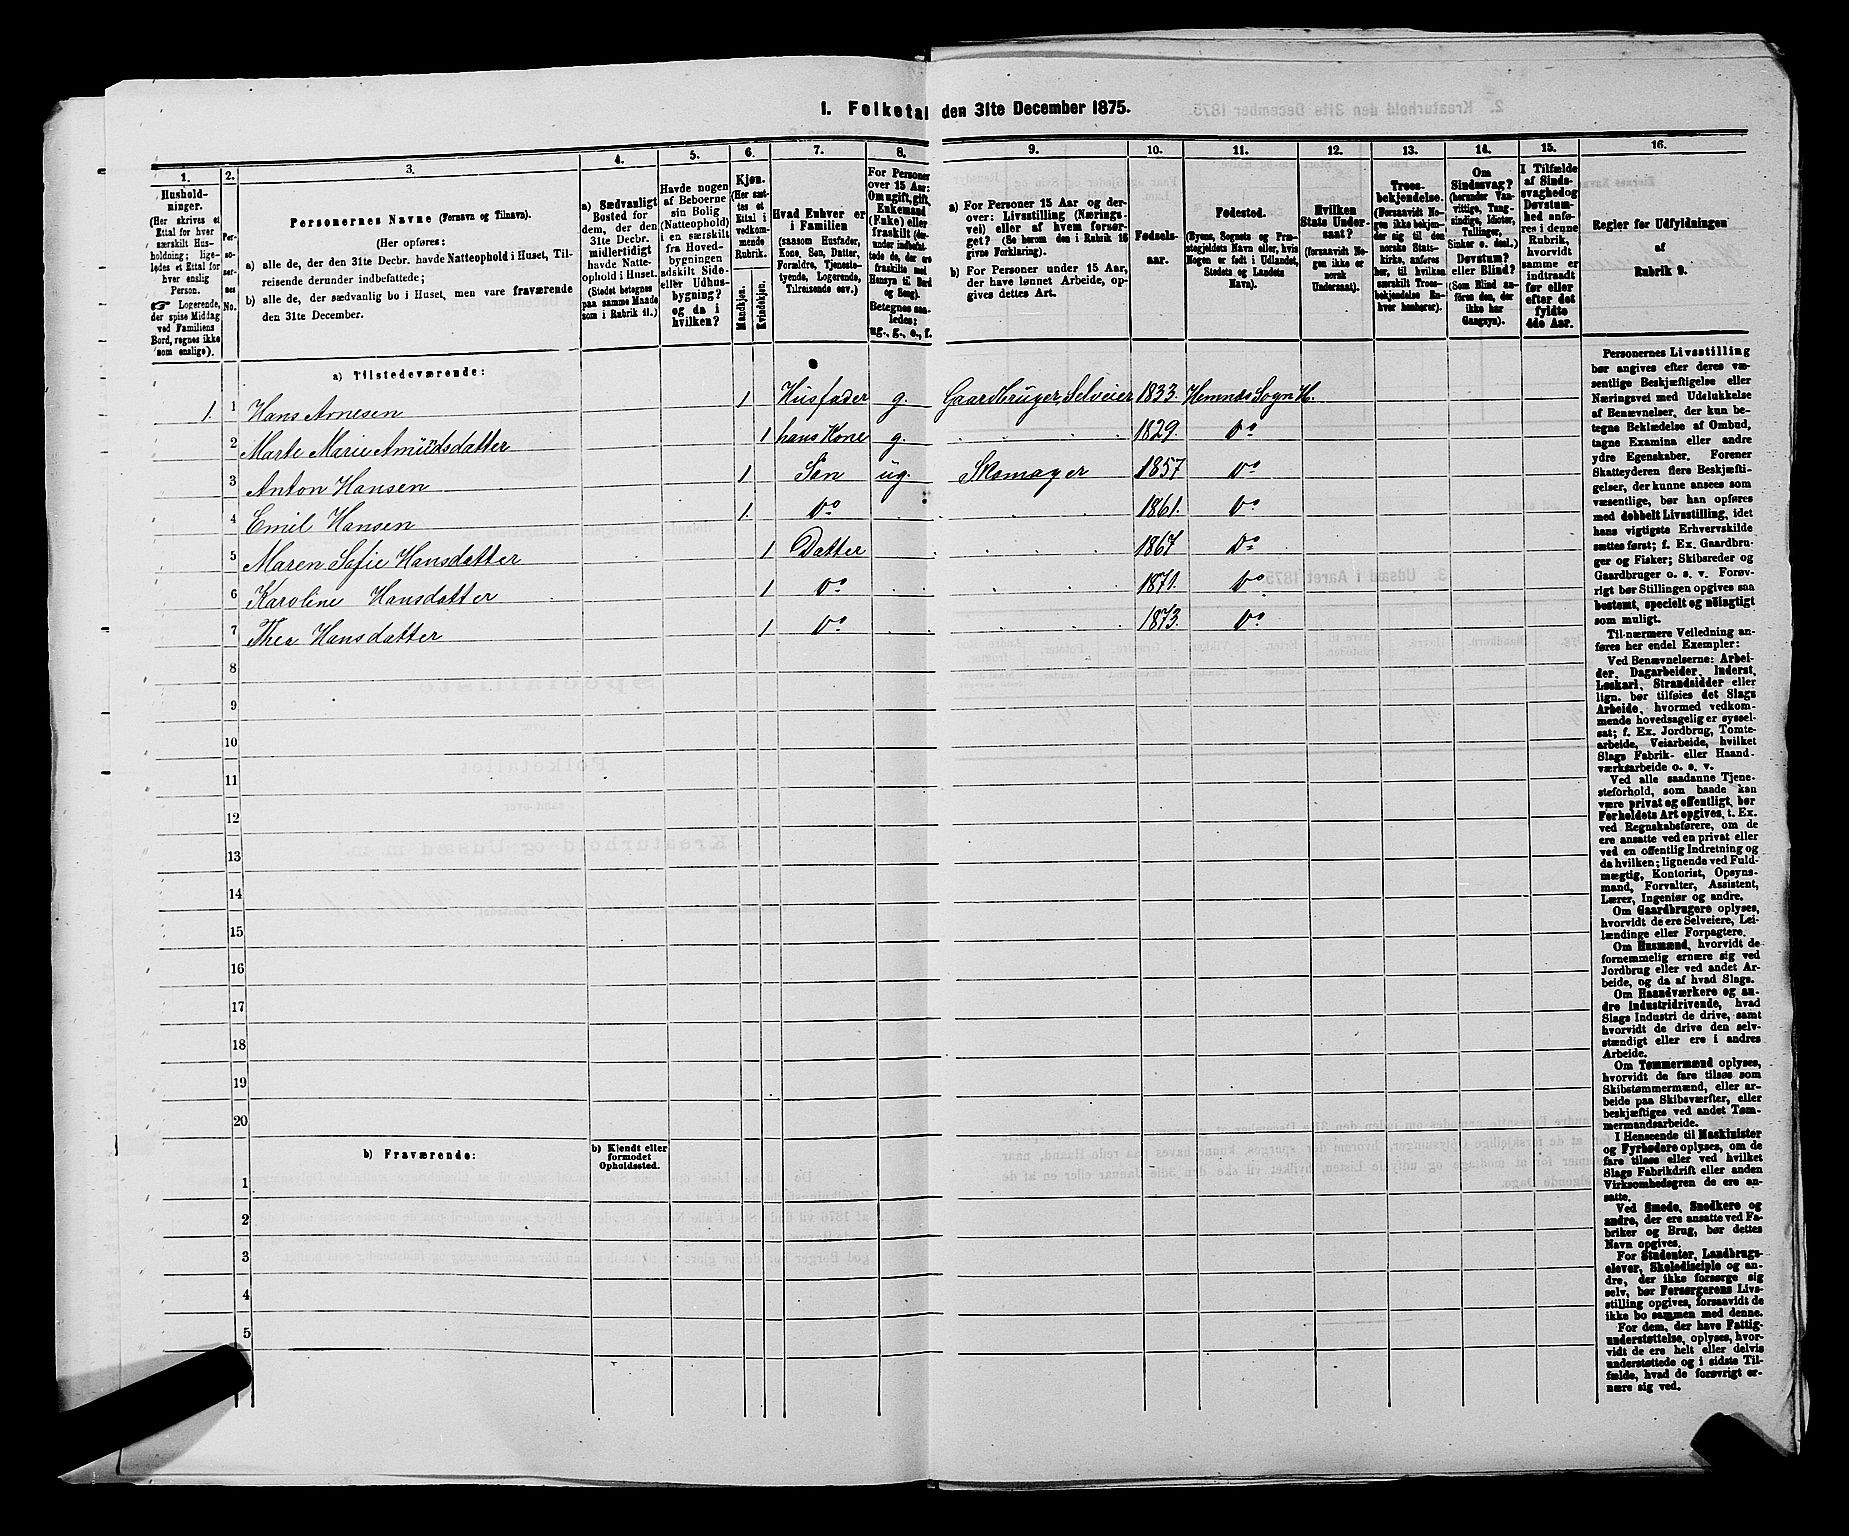 1. Folketal den 31te December 1875.
1. 2. 3. 4. 5. 6. 7. 8. 9. 10. 11. 12. 13. 14. 15. 16.
Hushold-
ninger.
(Her skrives et
Ettal for hver
særskilt Hus-
holdning; lige-
ledes et Ettal for
hver enslig
Person.
☞ Logerende,
der spise Middag
ved Familiens
Bord, regnes ikke
som enslige).
Per-
so-
ner-
nes
No.
Personernes Navne (Fornavn og Tilnavn).
(Her opføres:
a) alle de, der den 31te Decbr. havde Natteophold i Huset, Til-
reisende derunder indbefattede;
b) alle de, der sædvanlig bo i Huset, men vare fraværende
den 31te December.
a) Sædvanligt
Bosted for
dem, der den
31te Decbr.
midlertidigt
havde Natte-
ophold i Huset.
(Stedet betegnes
paa samme Maade
som i Rubrik 11.)
Havde nogen
af Beboerne
sin Bolig
(Natteophold)
i en særskilt
fra Hoved-
bygningen
adskilt Side-
eller Udhus-
bygning?
og da i
hvilken?
Kjøn.
(Her sæt-
tes et
Ettal i
vedkom-
mende
Rubrik.
Mandkjøn.
Kvindekjøn.
Hvad Enhver er
i Familien
(saasom Husfader,
Kone, Søn, Datter,
Forældre, Tjeneste-
tyende, Logerende,
Tilreisende osv.)
For Personer
over 15 Aar:
Om ugift, gift,
Enkemand
(Enke) eller
fraskilt (der-
under indbefat-
tede de, der ere
fraskilte med
Hensyn til Bord
og Seng).
Betegnes saa-
ledes:
ug., g., e., f.
a) For Personer 15 Aar og der-
over: Livsstilling (Nærings-
vei) eller af hvem forsør-
get? (Se herom den i Rubrik 16
givne Forklaring).
b) For Personer under 15 Aar,
der have lønnet Arbeide, op-
gives dettes Art.
Fødsels-
aar.
Fødested.
(Byens, Sognets og Præ-
stegjeldets Navn eller, hvis
Nogen er født i Udlandet,
Stedets og Landets
Navn).
Hvilken
Stats Under-
saat?
(forsaavidt No-
gen ikke er
norsk
Undersaat).
Troes-
bekjendelse.
(Forsaavidt No-
gen ikke bekjen-
der sig til den
norske Stats-
kirke, anføres
her, til hvilken
særskilt Troes-
bekjendelse En-
hver henhører).
Om
Sindssvag?
(herunder Van-
vittige, Tung-
sindige, Idioter,
Tullinger,
Sinker o. desl.)
Døvstum?
eller Blind?
(Som Blind an-
føres den, der
ikke har
Gangsyn).
I Tilfælde
af Sinds-
svaghed og
Døvstum-
hed anfø-
res i denne
Rubrik,
hvorvidt
samme er
indtraadt
før eller
efter det
fyldte
4de Aar.
Regler for Udfyldningen
af
Rubrik 9.
a) Tilstedeværende:
1. 1 Hans Arnesen 1 Husfader g. Gaardbruger, Selveier 1833.
2 Marte Marie Amundsdatter 1 hans Kone g. 1829. Do
3 Anton Hansen 1 Søn ug. Skomager 1857 Do
4 Emil Hansen 1. Do 1861. Do
5 Maren Sofie Hansdatter 1 Datter 1867 Do
6 Karoline Hansdatter 1 Do 1871. Do
7 Thea Hansdatter 1 Do 1873. Do
8
9
10
11
12
13
14
15
16
17
18
19
20
b) Fraværende: b) Kjendt eller
formodet
Opholdssted.
1
2
3
4
5
Personernes Livsstilling
bør angives efter deres væ-
sentlige Beskjæftigelse eller
Næringsvei med Udelukkelse
af Benævnelser, der kun be-
tegne Beklædelse af Ombud,
tagne Examina eller andre
ydre Egenskaber. Forener
Skatteyderen flere Beskjæfti-
gelser, der kunne ansees som
væsentlige, bør han opføres
med dobbelt Livsstilling, idet
hans vigtigste Erhvervskilde
sættes først; f. Ex. Gaardbru-
ger og Fisker; Skibsreder og
Gaardbruger o. s. v. Forøv-
rigt bør Stillingen opgives saa
bestemt, specielt og nøiagtigt
som muligt.
Til nærmere Veiledning an-
føres her endel Exempler:
Ved Benævnelserne: Arbei-
der, Dagarbeider, Inderst,
Løskarl, Strandsidder eller
lign. bør tilføies det Slags
Arbeide, hvormed vedkom-
mende hovedsagelig er syssel-
sat; f. Ex. Jordbrug, Tomte-
arbeide, Veiarbeide, hvilket
Slags Fabrik- eller Haand-
værksarbeide o. s. v.
Ved alle saadanne Tjene-
steforhold, som baade kan
være privat og offentligt, bør
Forholdets Art opgives, t. Ex.
ved Regnskabsførere, om de
ere ansatte ved en privat eller
ved en offentlig Indretning og
da hvilken; lignende ved Fuld-
mægtig, Kontorist, Opsyns-
mand, Forvalter, Assistent,
Lærer, Ingeniør og andre.
Om Gaardbrugere oplyses,
hvorvidt de ere Selveiere, Lei-
lændinge eller Forpagtere.
Om Husmænd, hvorvidt de
fornemmelig ernære sig ved
Jordbrug eller ved andet Ar-
beide, og da af hvad Slags.
Om Haandværkere og an-
dre Industridrivende, hvad
Slags Industri de drive, samt
hvorvidt de drive den selv-
stændigt eller ere i andres
Arbeide.
Om Tømmermænd oplyses,
hvorvidt de fare tilsøs som
Skibstømmermænd, eller ar-
beide paa Skibsværfter, eller
beskjæftiges ved andet Tøm-
mermandsarbeide.
I Henseende til Maskinister
og Fyrbødere oplyses, om de
fare tilsøs eller ved hvilket
Slags Fabrikdrift eller anden
Virksomhedsgren de ere an-
satte.
Ved Smede, Snedkere og
andre, der ere ansatte ved Fa-
briker og Brug, bør dettes
Navn opgives.
For Studenter, Landbrugs-
elever, Skoledisciple og an-
dre, der ikke forsørge sig
selv, bør Forsørgerens Livs-
stilling opgives, forsaavidt de
ikke bo sammen med denne.
For dem, der have Fattig-
understøttelse, oplyses, hvor-
vidt de ere helt eller delvis
understøttede og i sidste Til-
fælde, hvad de forøvrigt er-
nære sig ved.